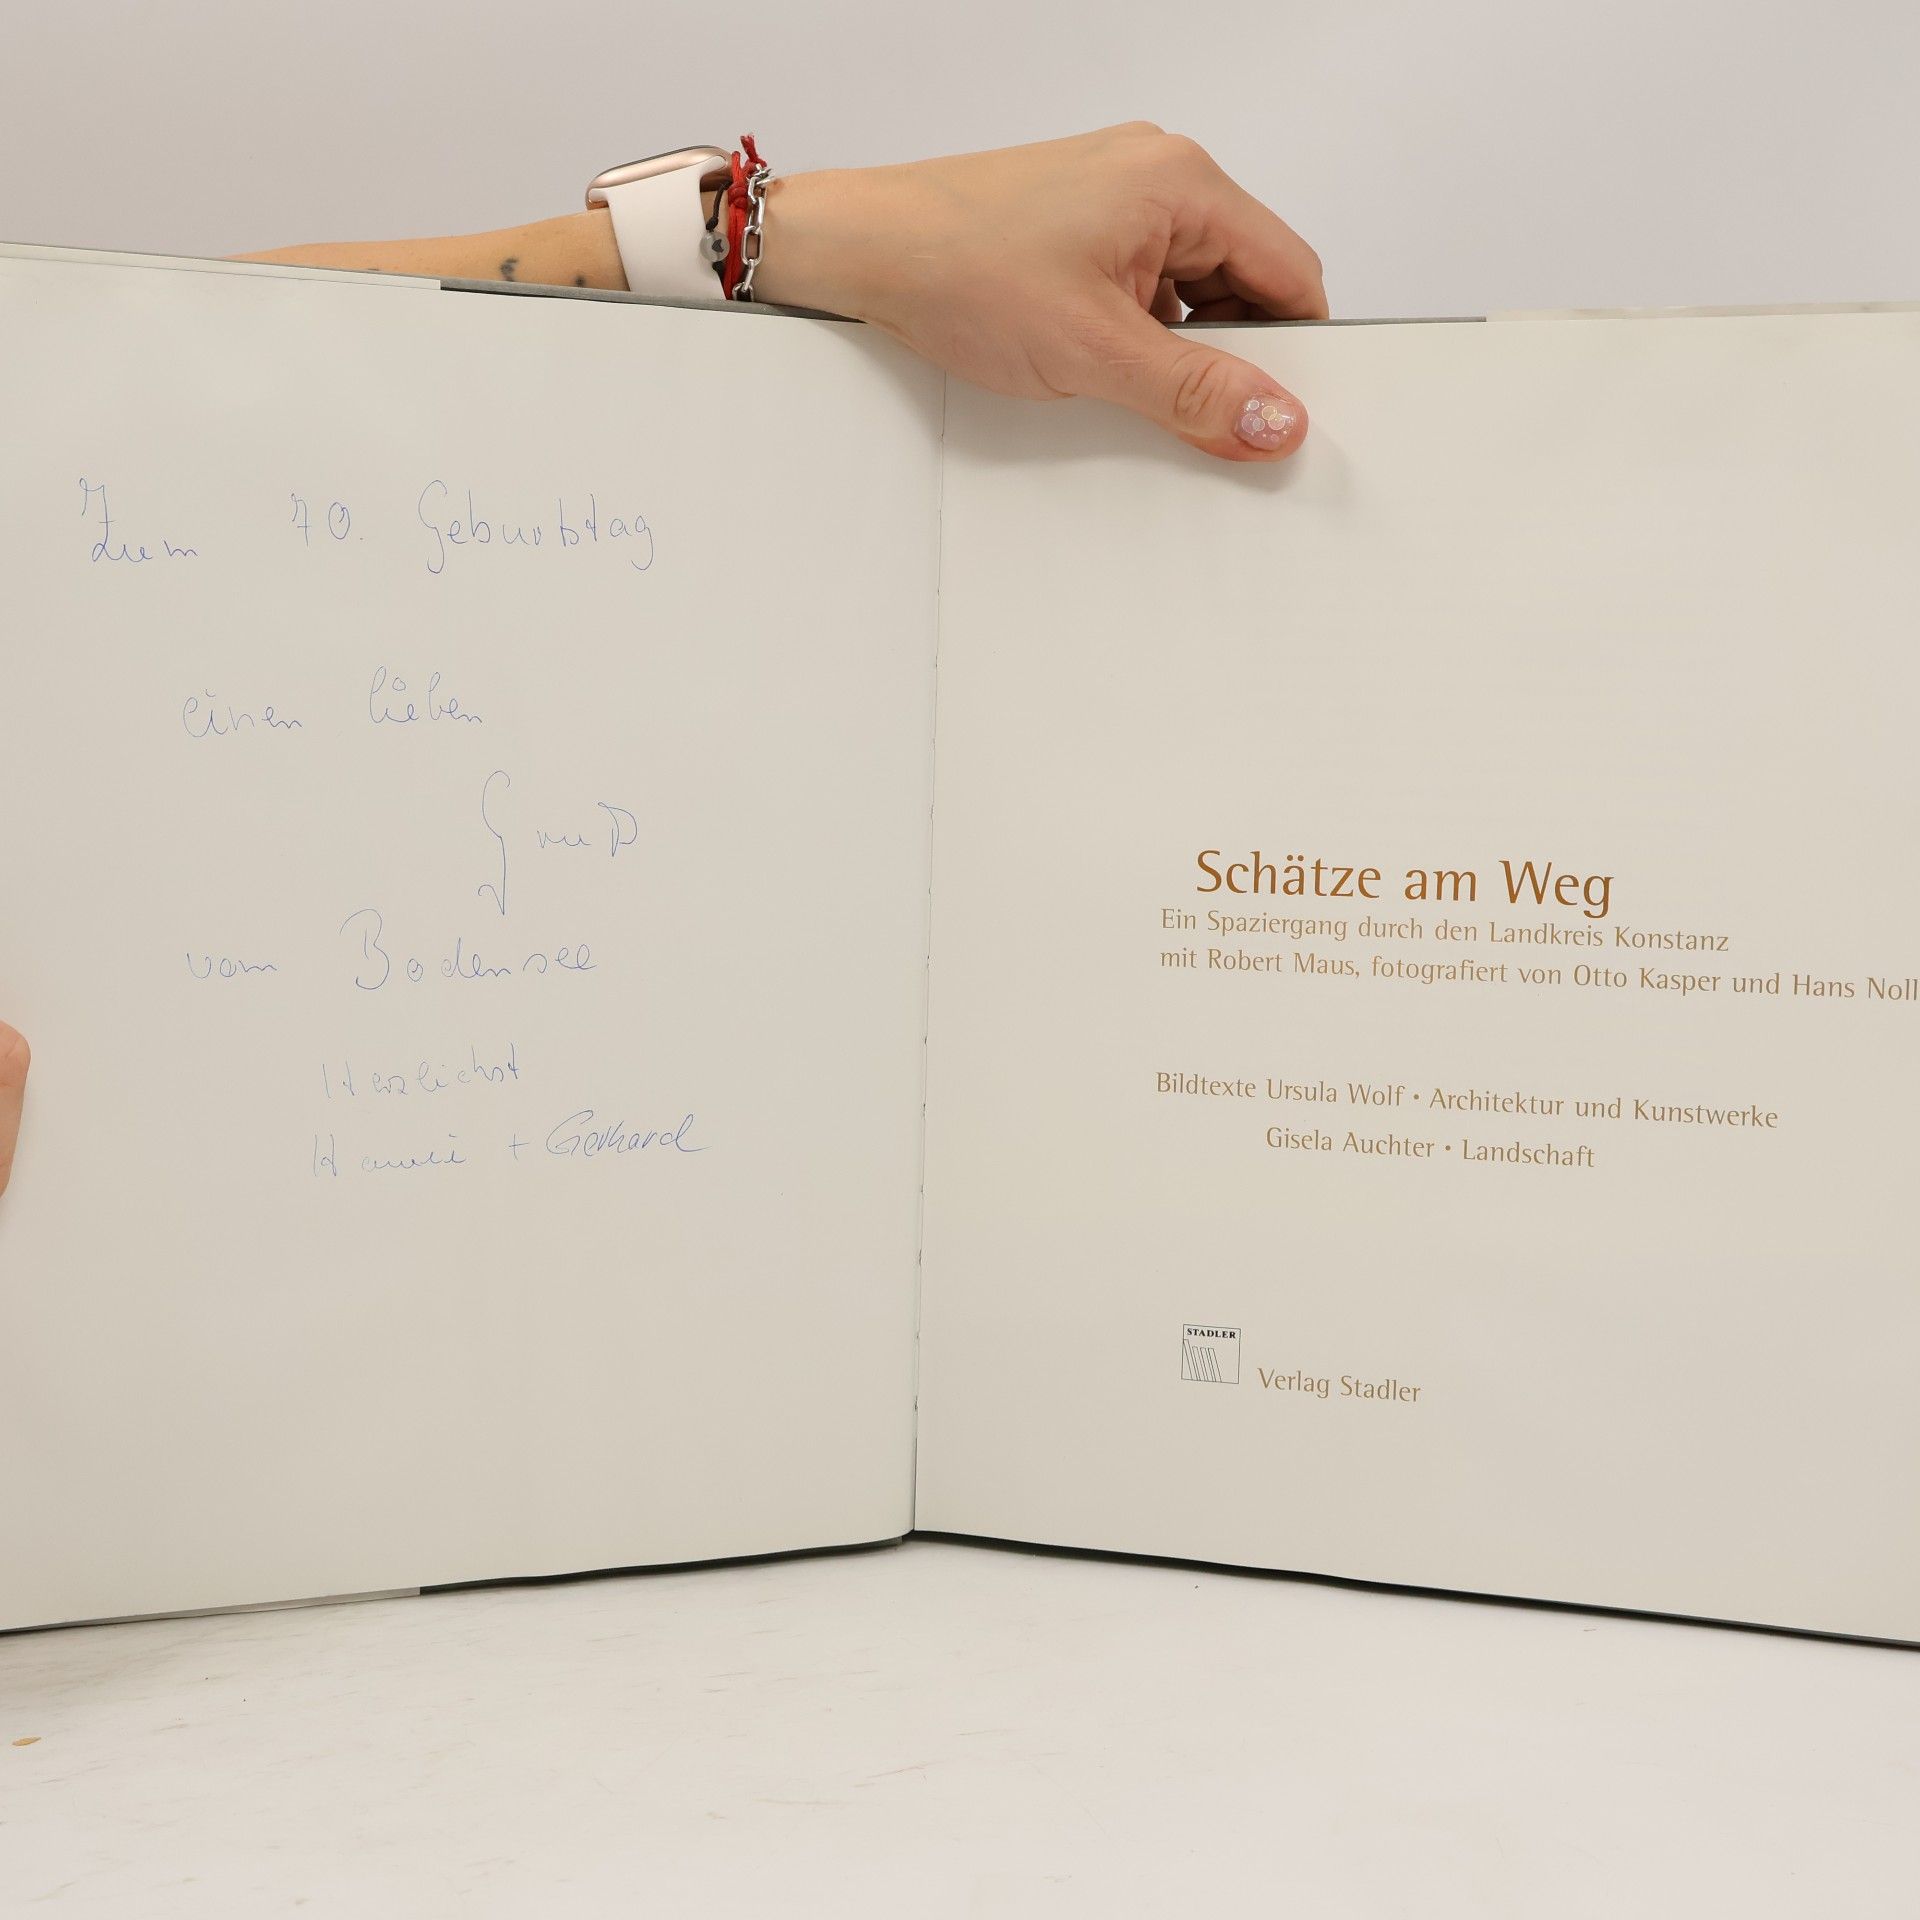 Zum 70. Geburtstag
einen lieben
Gruß
vom Bodensee
Herzlichst
+ Gerhard
Schätze am Weg
Ein Spaziergang durch den Landkreis Konstanz
mit Robert Maus, fotografiert von Otto Kasper und Hans Noll
Bildtexte Ursula Wolf • Architektur und Kunstwerke
Gisela Auchter • Landschaft
STADLER
Verlag Stadler